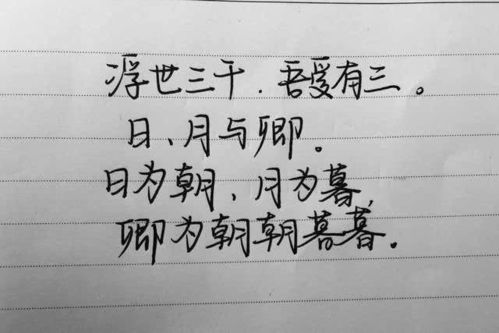 浮世三千.吾爱有三。
日、月与卿。
日为朝、月为暮,
卿为朝朝暮暮.